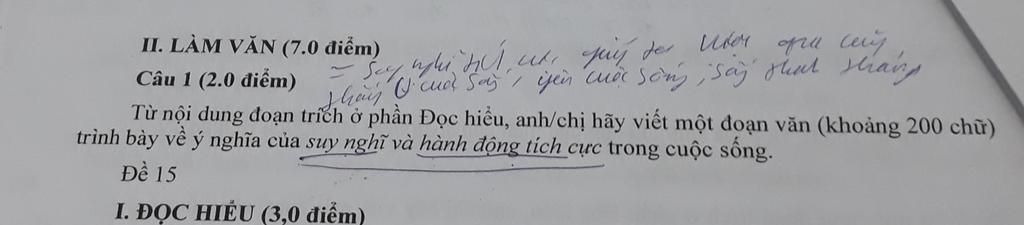 II. LÀM VĂN (7.0 điểm)
= suy nghĩ
Câu 1 (2.0 điểm)
cuộc sống, yêu cuộc sống, sống
Từ nội dung đoạn trích ở phần Đọc hiểu, anh/chị hãy viết một đoạn văn (khoảng 200 chữ)
trình bày về ý nghĩa của suy nghĩ và hành động tích cực trong cuộc sống.
Đề 15
I. ĐỌC HIỂU (3,0 điểm)